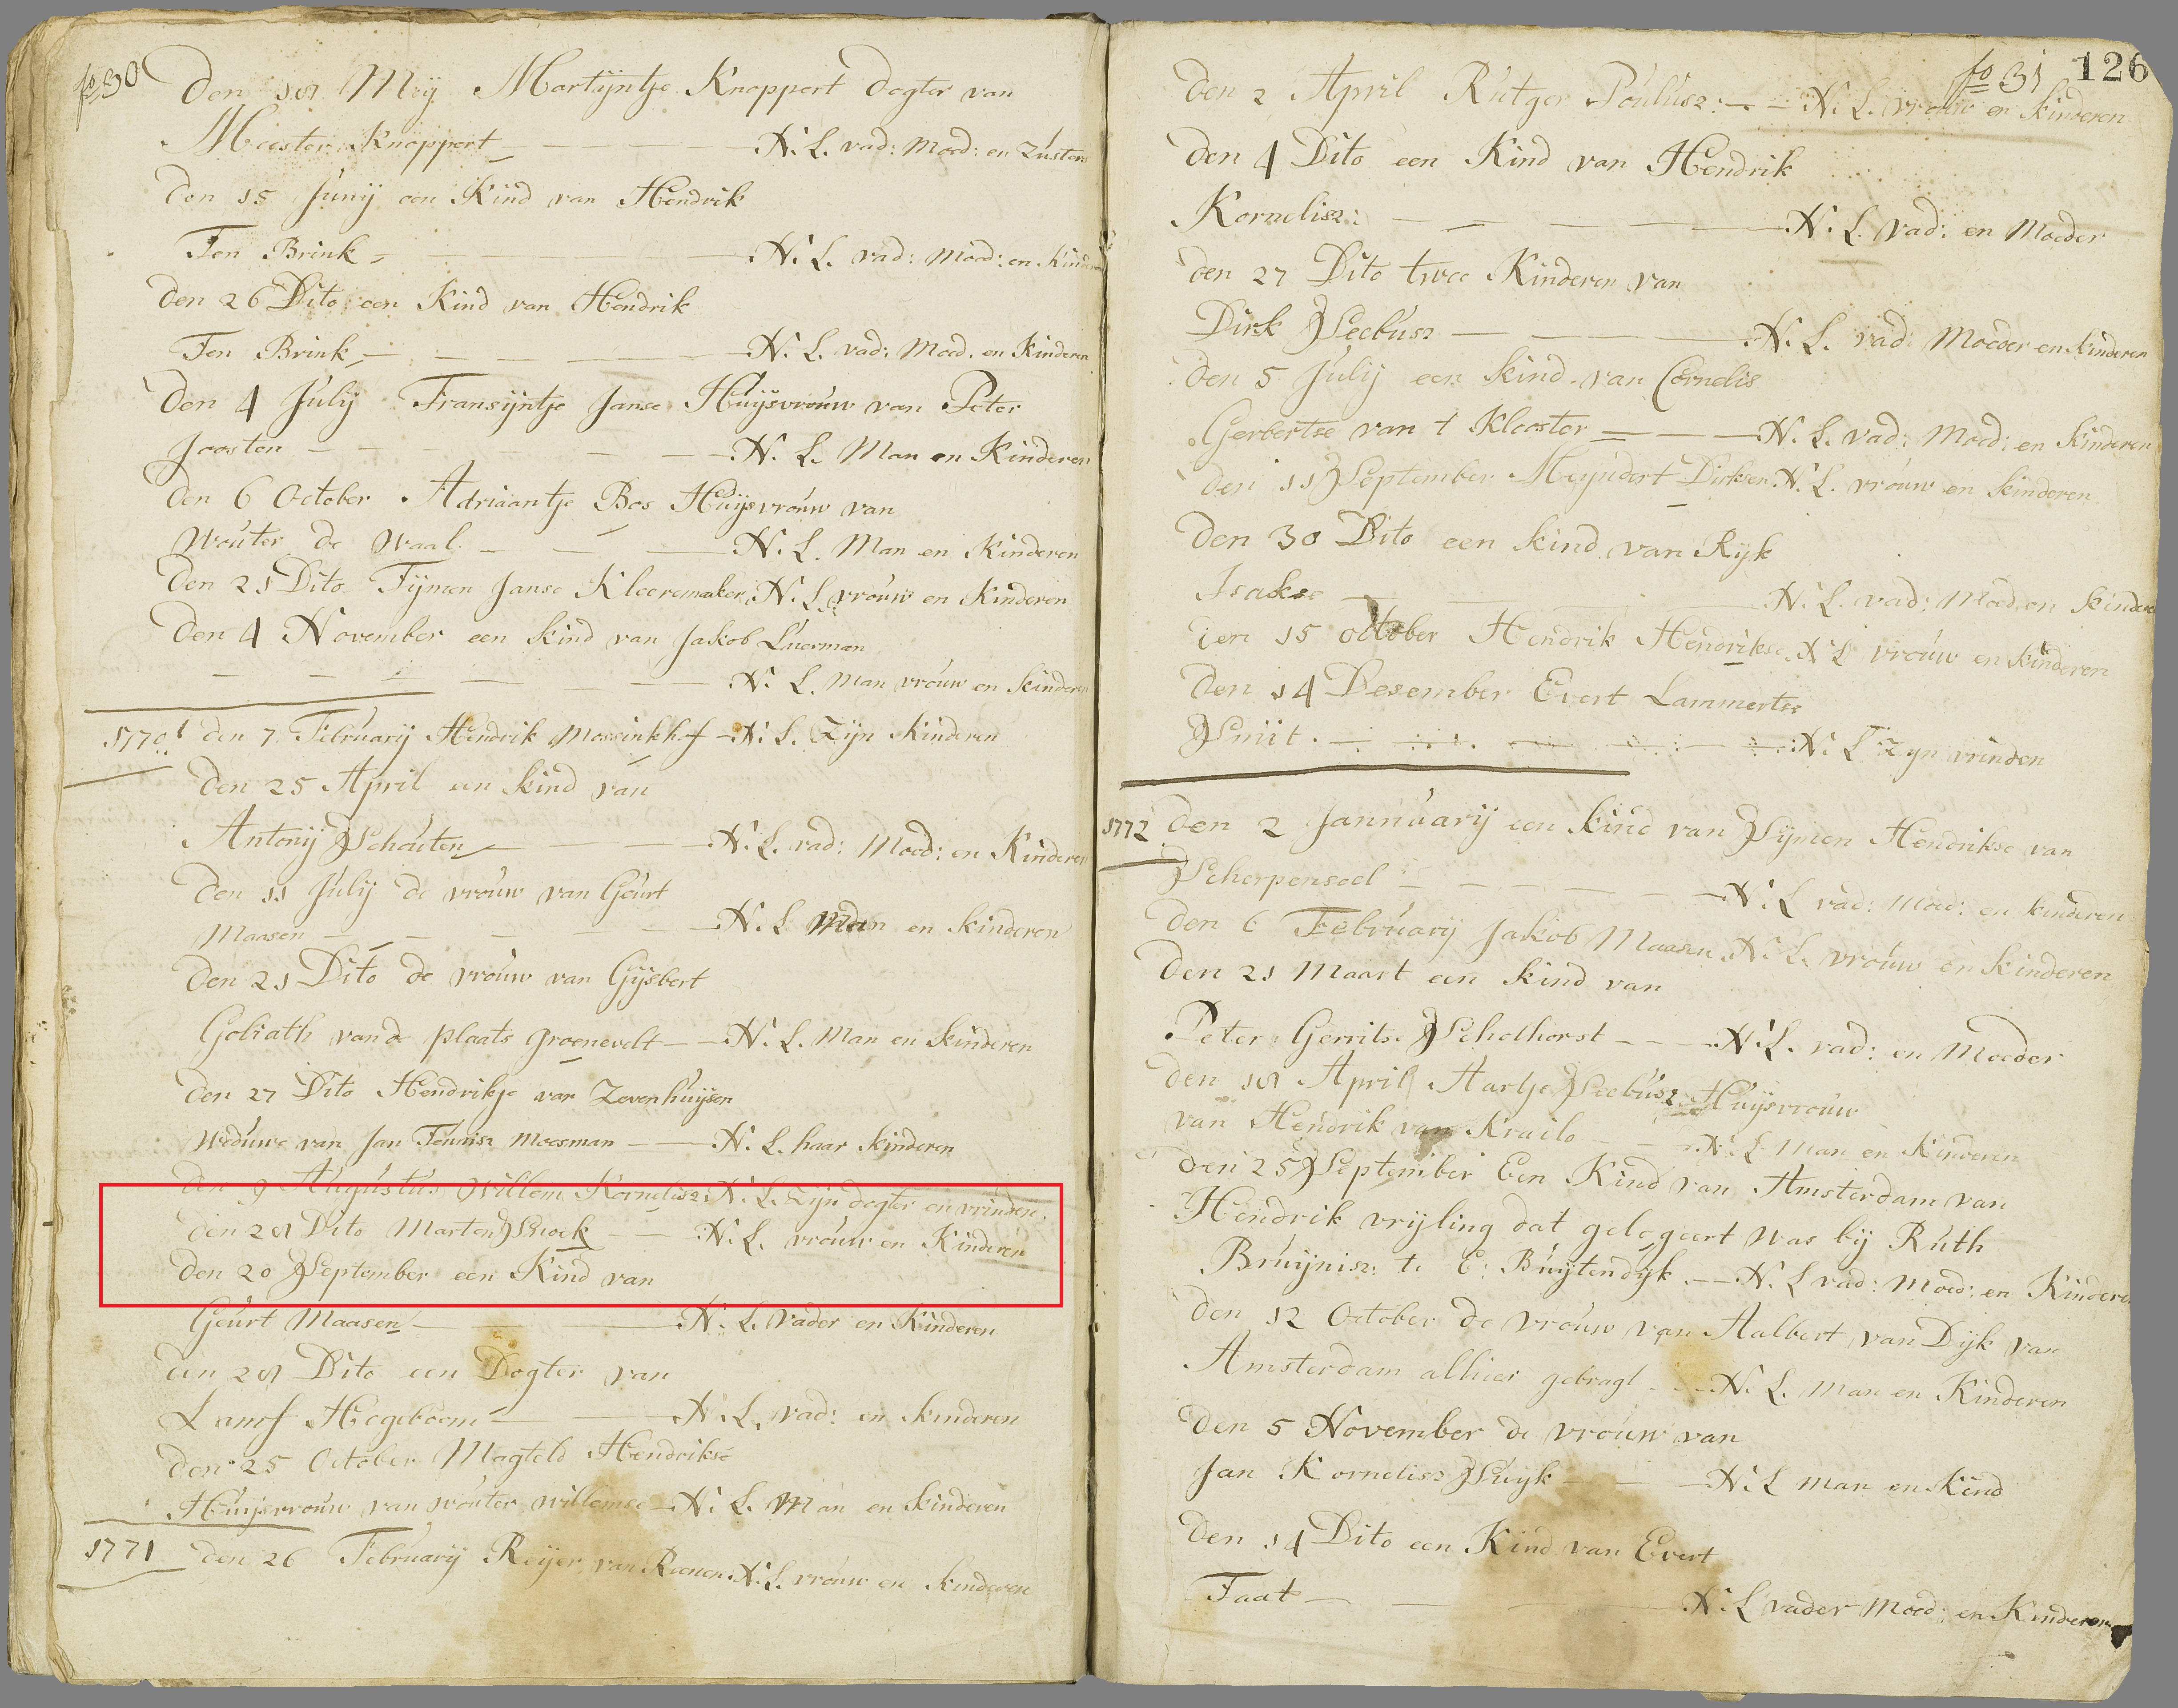 fo 30
Den 18 Meij Martijntje Knoppert Dogter van
Meester Knoppert N. L. vad: Moed: en Zusters
Den 15 Junij een Kind van Hendrik
Ten Brink N. L. vad: Moed: en Kinderen
Den 26 Dito een Kind van Hendrik
Ten Brink N. L. vad: Moed. en Kinderen
Den 4 Julij Fransijntje Janse Huijsvrouw van Peter
Joosten N. L. Man en Kinderen
Den 6 October Adriaantje Bos Huijsvrouw van
Wouter de Waal N. L. Man en Kinderen
Den 21 Dito Tijmen Janse Kleeremaker N. L. vrouw en Kinderen
Den 4 November een kind van Jakob Luerman
N. L. Man vrouw en kinderen
1770 den 7 Februarij Hendrik Mossinkhof N. L. Zijn Kinderen
Den 25 April een kind van
Antonij Schouten N. L. vad: Moed: en Kinderen
Den 11 Julij de vrouw van Geurt
Maasen N. L. Man en kinderen
Den 21 Dito de vrouw van Gijsbert
Goliath van de plaats Groenevelt N. L. Man en kinderen
Den 27 Dito Hendrikje van Zevenhuijsen
Weduwe van Jan Teunisz Moesman N. L. haar kinderen
Den 9 Augustus Willem Kornelisz N. L. Zijn dogter en vrinden
Den 28 Dito Marten Snoek N. L. vrouw en Kinderen
Den 20 September een Kind van
Geurt Maasen N. L. Vader en Kinderen
den 28 Dito een Dogter van
Hogeboom N. L. vad: en kinderen
Den 25 October Magteld Hendrikse
Huijsvrouw van Wouter Willemse N. L. Man en kinderen
1771 den 26 Februarij Reijer van N. L. vrouw en kinderen
fo 31 126
Den 2 April Rutger Poulusz: N. L. vrouw en kinderen
Den 4 Dito een Kind van Hendrik
Kornelisz: N. L. Vad: en Moeder
Den 27 Dito twee Kinderen van
Dirk Seebusz N. L. vad: Moeder en kinderen
Den 5 Julij een kind van Cornelis
Gerbertse van t Klooster N. L. vad: Moed: en kinderen
Den 11 September Meyndert Dirksen N. L. vrouw en kinderen
Den 30 Dito een kind van Rijk
Isakse N. L. vad: Moed en kinderen
Den 15 october Hendrik Hendrikse N L vrouw en kinderen
Den 14 Desember Evert Lammertse
Smit N. L Zyn vrinden
1772 Den 2 Jannuarij een kind van Sijmen Hendrikse van
Scherpenseel N. L vad: Moed: en kinderen
Den 6 Februarij Jakob Maasen N. L. vrouw en kinderen
Den 21 Maart een kind van
Peter Gerritse Scholhorst N. L. vad: en Moeder
Den 18 April Aartje Seebusz Huijsvrouw
van Hendrik van Krailo N. L Man en Kinderen
Den 25 September Een Kind van Amsterdam van
Hendrik vrijling dat gelogeert was bij Ruth
Bruijnisz: te E: Buijtendijk N. L vad: Moed: en Kinderen
Den 12 October de vrouw van Aalbert van Dijk van
Amsterdam alhier gebragt N. L. Man en Kinderen
Den 5 November de vrouw van
Jan Kornelisz Suijk N. L Man en Kind
Den 14 Dito een Kind van Evert
Taat N. L vader Moed: en Kinderen